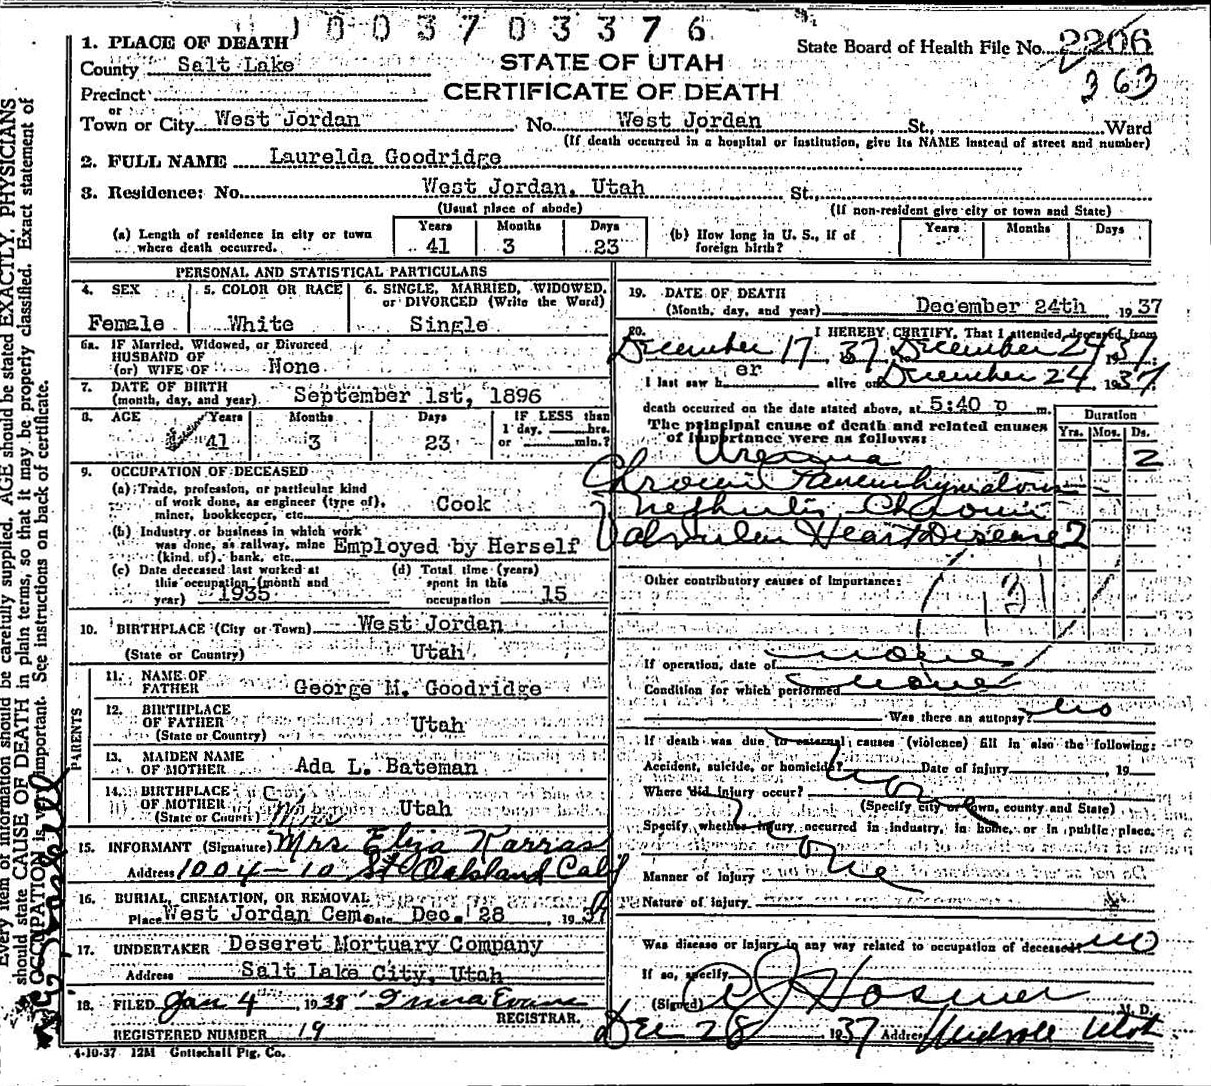 1003703376
1. PLACE OF DEATH
State Board of Health File No. 2206
County Salt Lake
STATE OF UTAH
363
Precinct
CERTIFICATE OF DEATH
or
Town or City West Jordan No. West Jordan St., Ward
(If death occurred in a hospital or institution, give its NAME instead of street and number)
2. FULL NAME Laurelda Goodridge
3. Residence: No. West Jordan, Utah St.,
(Usual place of abode) (If non-resident give city or town and State)
(a) Length of residence in city or town where death occurred. Years 41 Months 3 Days 23 (b) How long in U. S., if of foreign birth? Years Months Days
PERSONAL AND STATISTICAL PARTICULARS
4. SEX 5. COLOR OR RACE 6. SINGLE, MARRIED, WIDOWED,
or DIVORCED (Write the Word)
Female White Single
6a. IF Married, Widowed, or Divorced
HUSBAND OF
(or) WIFE OF None
7. DATE OF BIRTH
(month, day, and year) September 1st, 1896
8. AGE Years Months Days IF LESS than
1 day, hrs.
41 3 23 or min.?
9. OCCUPATION OF DECEASED
(a) Trade, profession, or particular kind
of work done, as engineer (type of),
miner, bookkeeper, etc. Cook
(b) Industry or business in which work
was done, as railway, mine
(kind of), bank, etc. Employed by Herself
(c) Date deceased last worked at (d) Total time (years)
this occupation (month and spent in this
year) 1935 occupation 15
10. BIRTHPLACE (City or Town) West Jordan
(State or Country) Utah
PARENTS
11. NAME OF
FATHER George M. Goodridge
12. BIRTHPLACE
OF FATHER Utah
(State or Country)
13. MAIDEN NAME
OF MOTHER Ada L. Bateman
14. BIRTHPLACE
OF MOTHER Utah
(State or Country)
Mrs
15. INFORMANT (Signature) Mrs Eliza Karras
Address 1004-10 St Oakland Calf
16. BURIAL, CREMATION, OR REMOVAL
Place West Jordan Cem Date Dec. 28, 1937
17. UNDERTAKER Deseret Mortuary Company
Address Salt Lake City, Utah
18. FILED Jan 4 1938 Irma Evans
REGISTRAR.
REGISTERED NUMBER 19
4-10-37 12M Gottschall Ptg. Co.
19. DATE OF DEATH
(Month, day, and year) December 24th 1937
20. I HEREBY CERTIFY, That I attended deceased from
December 17, 1937, to December 24 1937
I last saw her alive on December 24, 1937
death occurred on the date stated above, at 5:40 p m.
The principal cause of death and related causes
of importance were as follows:
Duration
Yrs. Mos. Ds.
Uremia 2
Chronic Parenchymatous
Nephritis, Chronic
Valvular Heart Disease 2
Other contributory causes of importance:
If operation, date of none
Condition for which performed none
Was there an autopsy? no
If death was due to external causes (violence) fill in also the following:
Accident, suicide, or homicide? Date of injury , 19
Where did injury occur? none
(Specify city or town, county and State)
Specify whether injury occurred in industry, in home, or in public place.
none
Manner of injury
Nature of injury
Was disease or injury in any way related to occupation of deceased? no
If so, specify
(Signed) Hosmer M. D.
Dec 28 1937 Address Midvale Utah
Every item of information should be carefully supplied. AGE should be stated EXACTLY. PHYSICIANS
should state CAUSE OF DEATH in plain terms, so that it may be properly classified. Exact statement of
OCCUPATION is very important. See instructions on back of certificate.